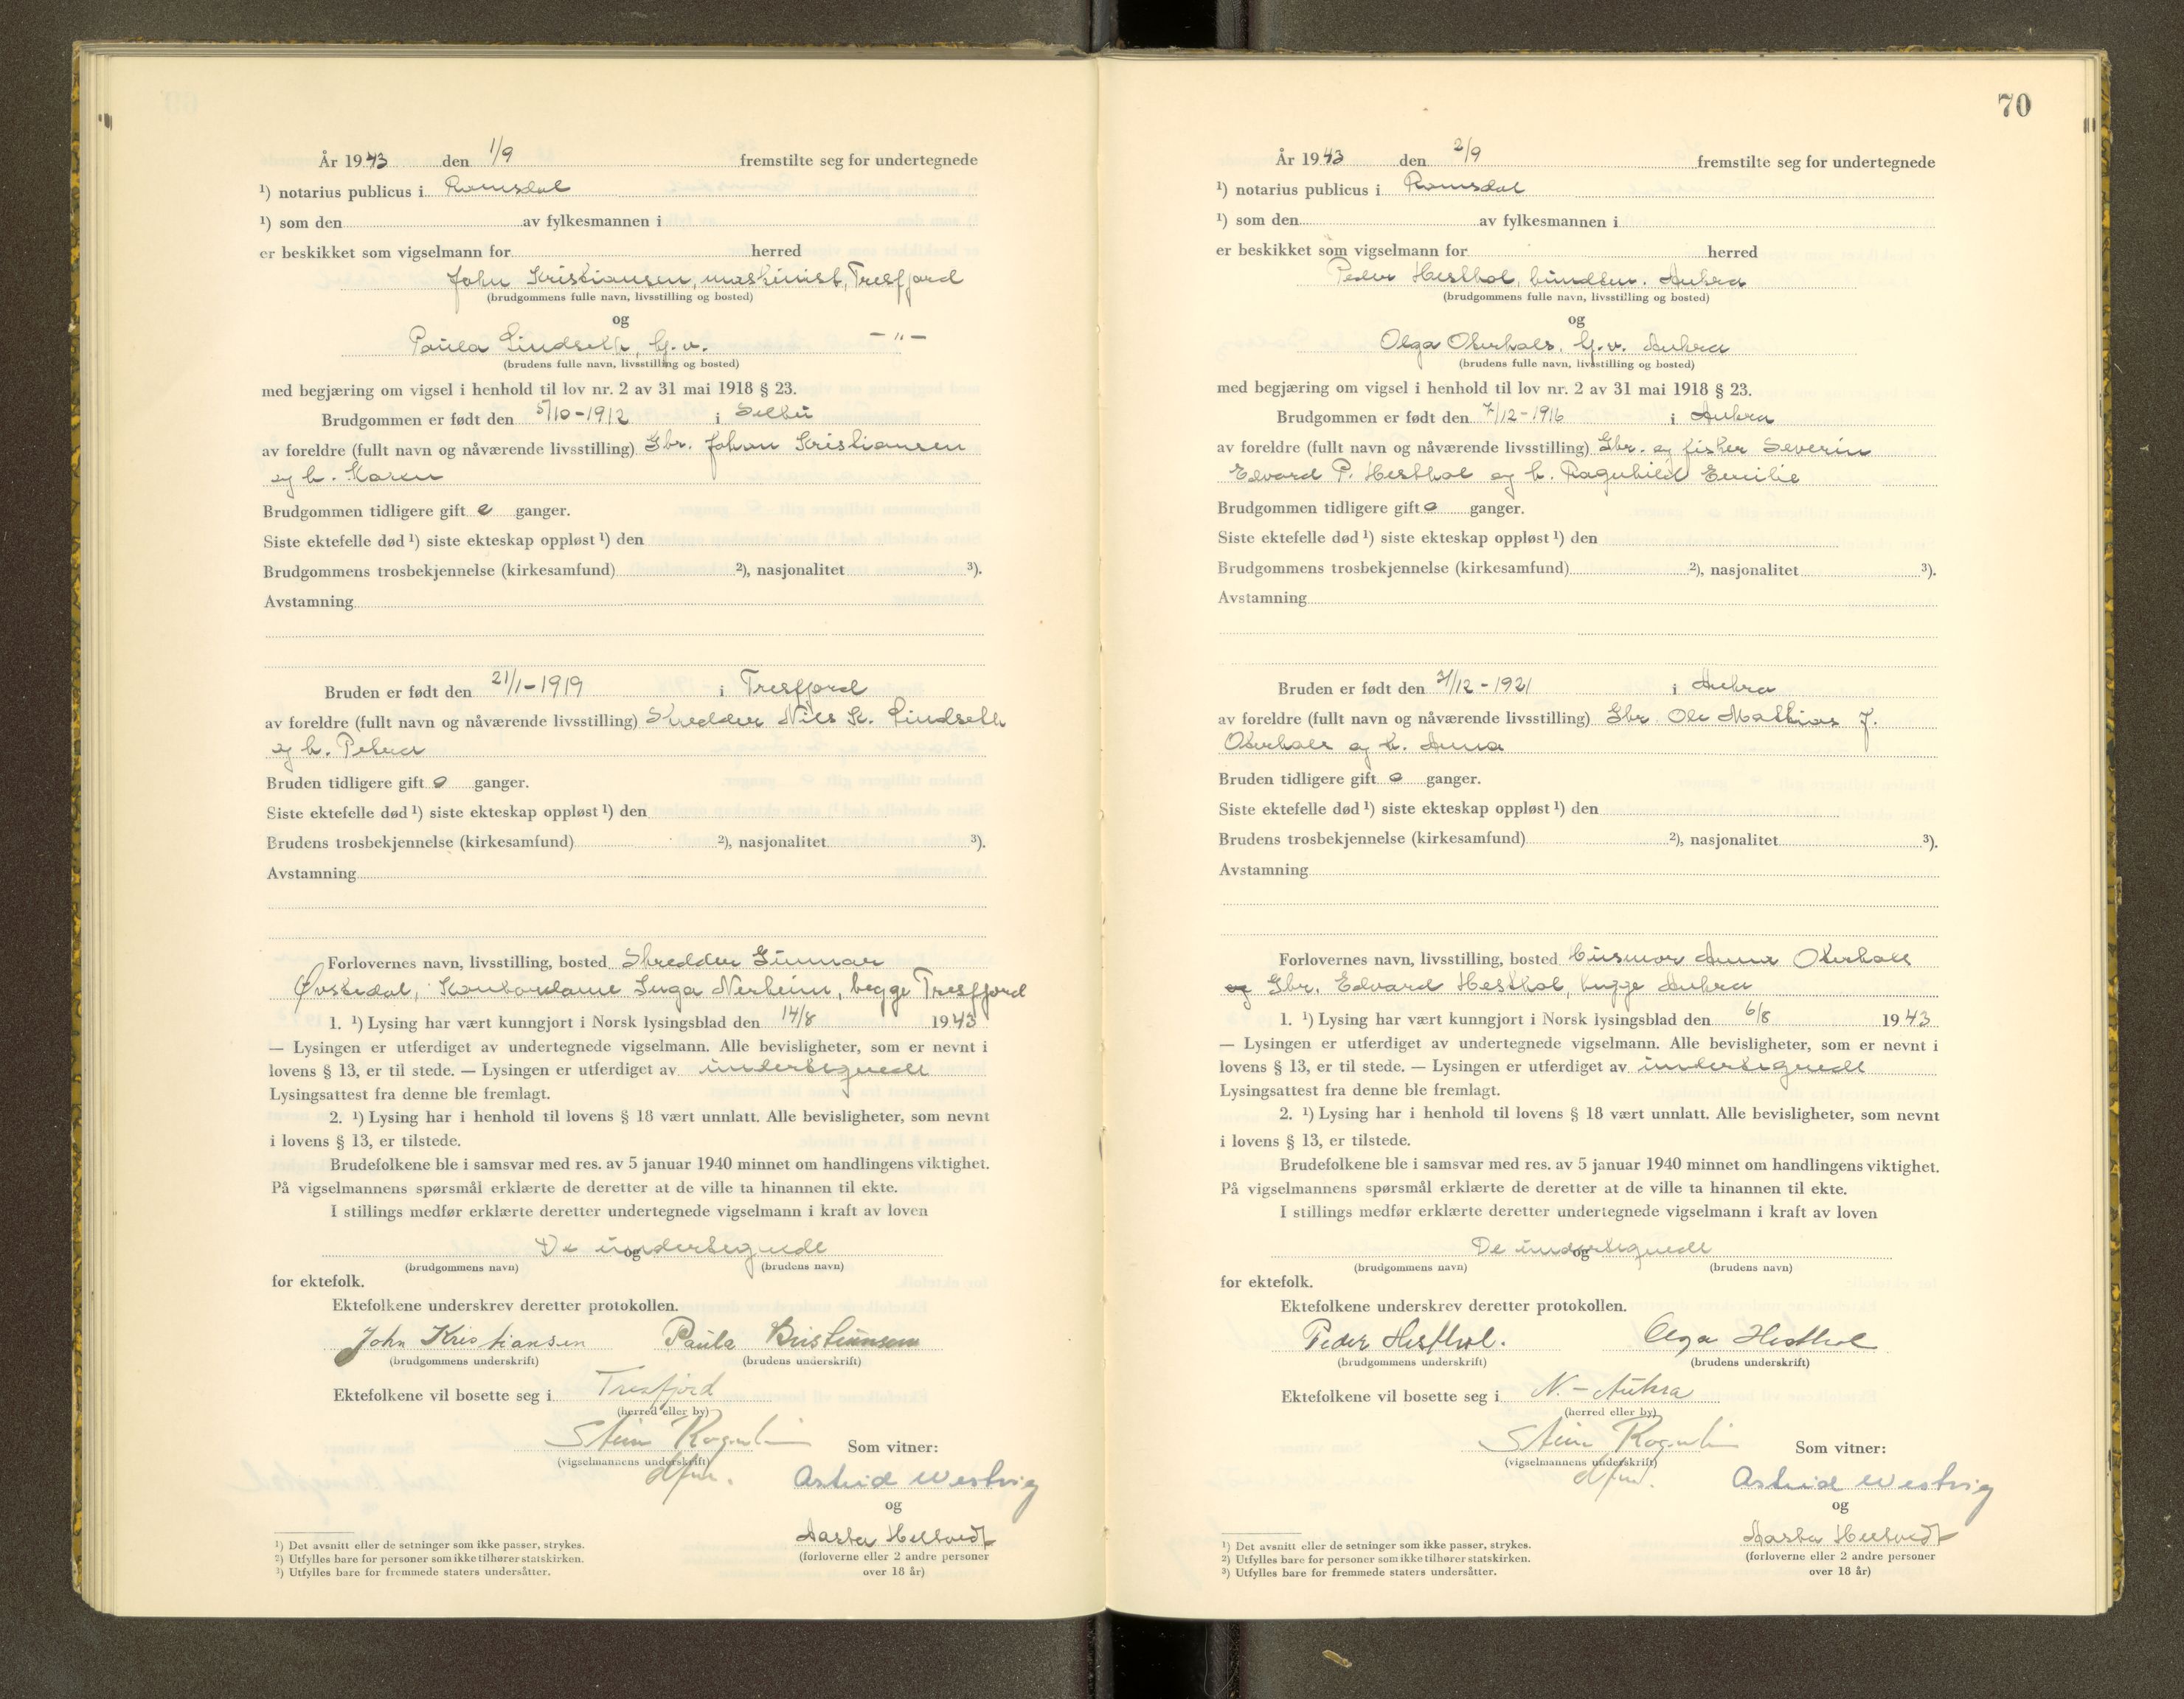 År 1943 den 1/9 fremstilte seg for undertegnede
¹) notarius publicus i Romsdal
¹) som den av fylkesmannen i
er beskikket som vigselmann for herred
John Kristiansen, maskinist, Tresfjord
(brudgommens fulle navn, livsstilling og bosted)
og
Paula Lindseth, hj.v. - " -
(brudens fulle navn, livsstilling og bosted)
med begjæring om vigsel i henhold til lov nr. 2 av 31 mai 1918 § 23.
Brudgommen er født den 5/10-1912 i Selbu
av foreldre (fullt navn og nåværende livsstilling) Gbr. Johan Kristiansen
og h. Maren
Brudgommen tidligere gift 0 ganger.
Siste ektefelle død ¹) siste ekteskap oppløst ¹) den
Brudgommens trosbekjennelse (kirkesamfund) ²), nasjonalitet ³).
Avstamning
Bruden er født den 21/1-1919 i Tresfjord
av foreldre (fullt navn og nåværende livsstilling) Skredder Nils K. Lindseth
og h. Petra
Bruden tidligere gift 0 ganger.
Siste ektefelle død ¹) siste ekteskap oppløst ¹) den
Brudens trosbekjennelse (kirkesamfund) ²), nasjonalitet ³).
Avstamning
Forlovernes navn, livsstilling, bosted Skredder Gunnar
Øvstedal, Kontordame Inga Nerheim, begge Tresfjord
1. ¹) Lysing har vært kunngjort i Norsk lysingsblad den 14/8 1943
— Lysingen er utferdiget av undertegnede vigselmann. Alle bevisligheter, som er nevnt i
lovens § 13, er til stede. — Lysingen er utferdiget av undertegnede
Lysingsattest fra denne ble fremlagt.
2. ¹) Lysing har i henhold til lovens § 18 vært unnlatt. Alle bevisligheter, som nevnt
i lovens § 13, er tilstede.
Brudefolkene ble i samsvar med res. av 5 januar 1940 minnet om handlingens viktighet.
På vigselmannens spørsmål erklærte de deretter at de ville ta hinannen til ekte.
I stillings medfør erklærte deretter undertegnede vigselmann i kraft av loven
De undertegnede
og
(brudgommens navn) (brudens navn)
for ektefolk.
Ektefolkene underskrev deretter protokollen.
John Kristiansen Paula Kristiansen
(brudgommens underskrift) (brudens underskrift)
Ektefolkene vil bosette seg i Tresfjord
(herred eller by)
Stein Rognlien
(vigselmannens underskrift)
dfm.
Som vitner:
Astrid Westvig
og
Aasta Hellvedt
(forloverne eller 2 andre personer
over 18 år)
¹) Det avsnitt eller de setninger som ikke passer, strykes.
²) Utfylles bare for personer som ikke tilhører statskirken.
³) Utfylles bare for fremmede staters undersåtter.
70
År 1943 den 2/9 fremstilte seg for undertegnede
¹) notarius publicus i Romsdal
¹) som den av fylkesmannen i
er beskikket som vigselmann for herred
Peder Hesthol, Aukra
(brudgommens fulle navn, livsstilling og bosted)
og
Olga Oterhals, hj.v. Aukra
(brudens fulle navn, livsstilling og bosted)
med begjæring om vigsel i henhold til lov nr. 2 av 31 mai 1918 § 23.
Brudgommen er født den 7/12-1916 i Aukra
av foreldre (fullt navn og nåværende livsstilling) Gbr. og fisker Severin
Edvard P. Hesthol og h. Ragnhild Emilie
Brudgommen tidligere gift 0 ganger.
Siste ektefelle død ¹) siste ekteskap oppløst ¹) den
Brudgommens trosbekjennelse (kirkesamfund) ²), nasjonalitet ³).
Avstamning
Bruden er født den 21/12-1921 i Aukra
av foreldre (fullt navn og nåværende livsstilling) Gbr. Ole Mathias J.
Oterhals og h. Anna
Bruden tidligere gift 0 ganger.
Siste ektefelle død ¹) siste ekteskap oppløst ¹) den
Brudens trosbekjennelse (kirkesamfund) ²), nasjonalitet ³).
Avstamning
Forlovernes navn, livsstilling, bosted Husmor Anna Oterhals
og Gbr. Edvard Hesthol, begge Aukra
1. ¹) Lysing har vært kunngjort i Norsk lysingsblad den 6/8 1943
— Lysingen er utferdiget av undertegnede vigselmann. Alle bevisligheter, som er nevnt i
lovens § 13, er til stede. — Lysingen er utferdiget av undertegnede
Lysingsattest fra denne ble fremlagt.
2. ¹) Lysing har i henhold til lovens § 18 vært unnlatt. Alle bevisligheter, som nevnt
i lovens § 13, er tilstede.
Brudefolkene ble i samsvar med res. av 5 januar 1940 minnet om handlingens viktighet.
På vigselmannens spørsmål erklærte de deretter at de ville ta hinannen til ekte.
I stillings medfør erklærte deretter undertegnede vigselmann i kraft av loven
De undertegnede
og
(brudgommens navn) (brudens navn)
for ektefolk.
Ektefolkene underskrev deretter protokollen.
Peder Hesthol. Olga Hesthol
(brudgommens underskrift) (brudens underskrift)
Ektefolkene vil bosette seg i N.-Aukra
(herred eller by)
Stein Rognlien
(vigselmannens underskrift)
dfm.
Som vitner:
Astrid Westvig
og
Aasta Hellvedt
(forloverne eller 2 andre personer
over 18 år)
¹) Det avsnitt eller de setninger som ikke passer, strykes.
²) Utfylles bare for personer som ikke tilhører statskirken.
³) Utfylles bare for fremmede staters undersåtter.